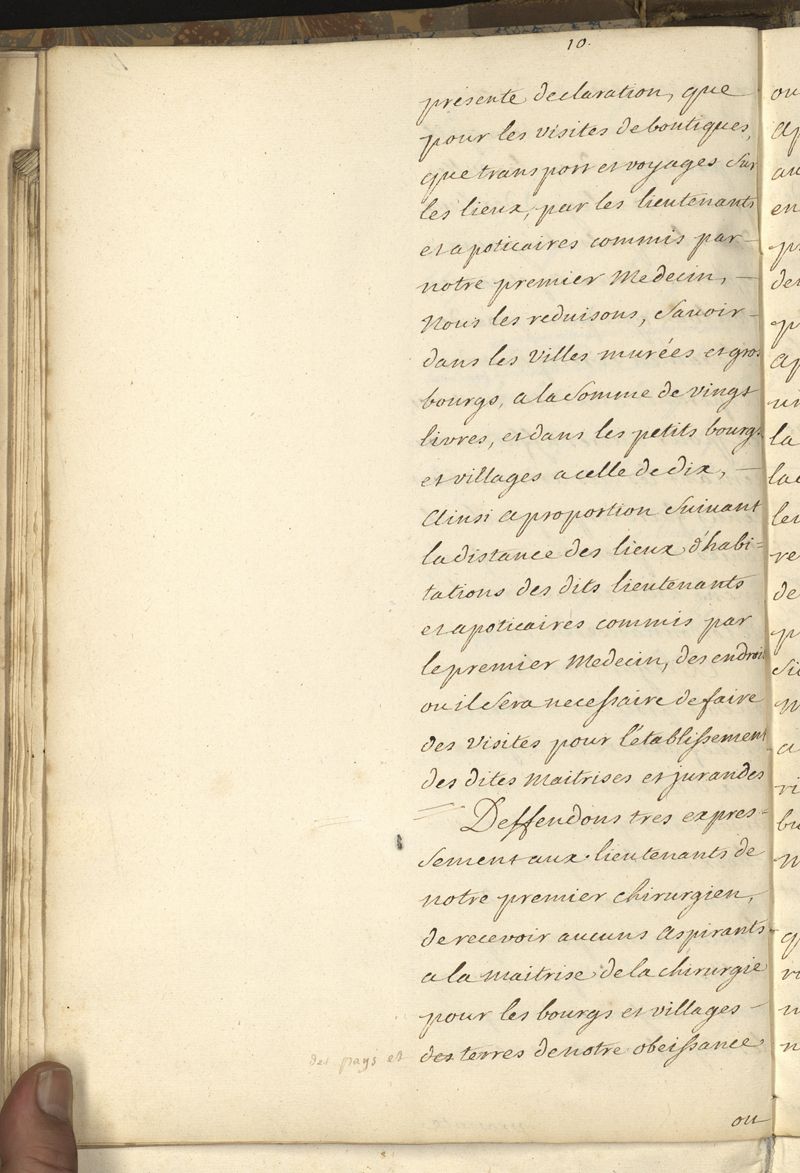 10.
présente declaration, que
pour les visites de boutiques,
que transport et voyages sur
les lieux, par les lieutenants
et apoticaires commis par
notre premier Medecin,
Nous les reduisons, savoir
dans les villes murées et gros
bourgs, a la somme de vingt
livres, et dans les petits bourgs
et villages a celle de dix,
Ainsi a proportion suivant
la distance des lieux d'habi=
tations des dits lieutenants
et apoticaires commis par
le premier Medecin, des endroits
ou il sera necessaire de faire
des visites pour l'etablissement
des dites maitrises et jurandes
Deffendons tres expres=
sement aux lieutenants de
notre premier chirurgien,
de recevoir aucuns aspirants
a la maitrise de la chirurgie
pour les bourgs et villages
des pays et des terres de notre obeissance
ou